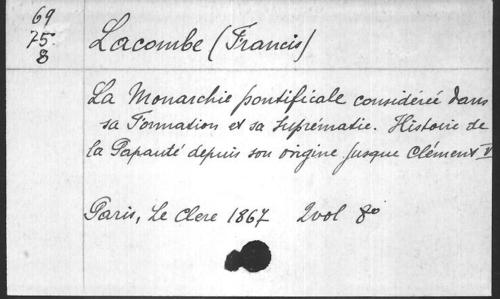 69
75.
8
Lacombe (Francis)
La Monarchie pontificale considérée dans
sa Formation et sa Suprématie. Histoire de
la Papauté depuis son origine jusque Clément V
Paris, Le Clere 1867 2 vol 8º